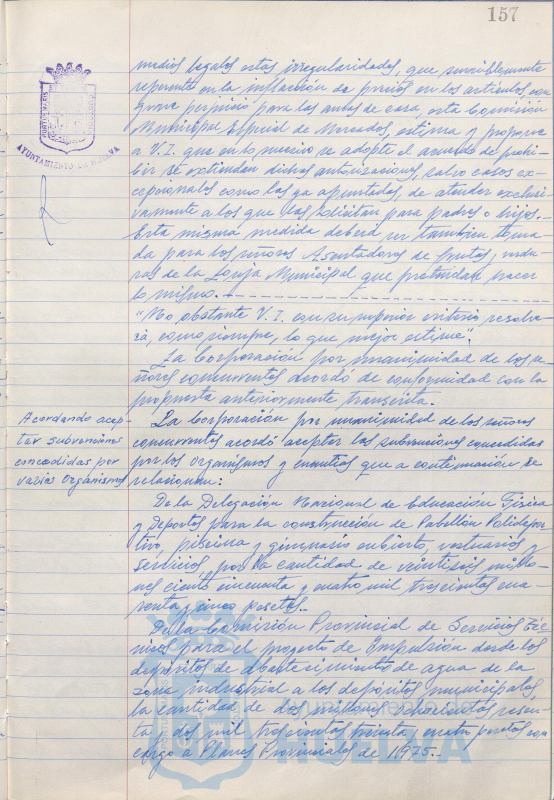 157
medios legales estas irregularidades, que sensiblemente
repercute en la inflación de precios en los artículos con
grave perjuicio para las amas de casa, esta Comisión
Municipal Especial de Mercados, estima y propone
a V.I. que en lo sucesivo se adopte el acuerdo de prohi-
bir se extiendan dichas autorizaciones, salvo casos ex-
cepcionales como los ya apuntados, de atender exclusi-
vamente a los que las solicitan para padres o hijos.
Esta misma medida deberá ser tambien toma-
da para los señores Asentadores de frutas, verdu-
ras de la Lonja Municipal que pretendan hacer
lo mismo.
"No obstante V.I. con su superior criterio resolve-
rá, como siempre, lo que mejor estime".
La Corporación por unanimidad de los se-
ñores concurrentes acordó de conformidad con la
propuesta anteriormente transcrita.
Acordando acep-
tar subvenciones
concedidas por
varios organismos
La Corporación por unanimidad de los señores
concurrentes acordó aceptar las subvenciones concedidas
por los organismos y cuantías que a continuación se
relacionan:
De la Delegación Nacional de Educación Física
y Deportes para la construcción de Pabellón Polidepor-
tivo, piscina y gimnasio cubierto, vestuarios y
servicios, por la cantidad de veintiseis millo-
nes ciento cincuenta y cuatro mil trescientas cua-
renta y cinco pesetas.
De la Comisión Provincial de Servicios Téc-
nicos para el proyecto de Impulsión desde los
depósitos de abastecimiento de agua de la
zona industrial a los depósitos municipales,
la cantidad de dos millones ochocientas sesen-
ta y dos mil trescientas treinta y cuatro pesetas con
cargo a Planes Provinciales de 1975.
AYUNTAMIENTO DE HUELVA